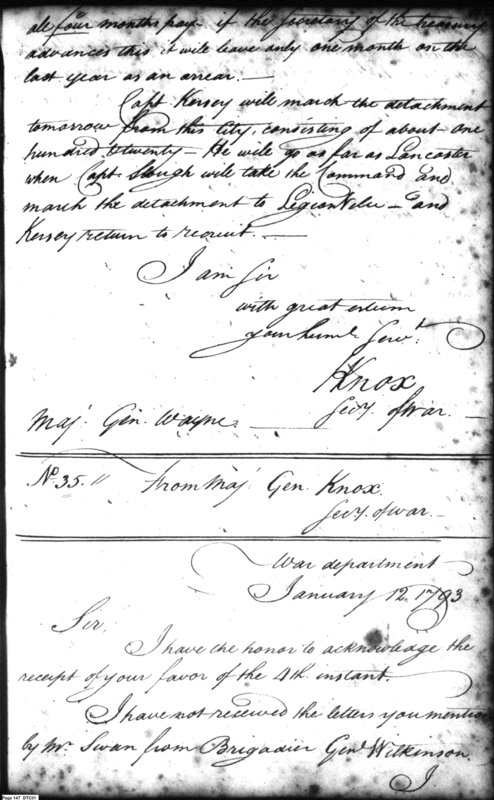 all four months pay. if the Secretary of the treasury
advances this it will leave only one month on the
last year as an arrear. —
Capt Kersey will march the detachment
tomorrow from this City, consisting of about one
hundred & twenty — He will go as far as Lancaster
when Capt. Slough will take the Command and
march the detachment to Legion Ville — and
Kersey return to recruit. —
I am Sir
with great esteem
your huml. Servt.
Knox
Secy. of War. —
Maj. Gen. Wayne. —
No. 35. 11 From Maj. Gen. Knox.
Secy. of war —
War department
January 12. 1793
Sir,
I have the honor to acknowledge the
receipt of your favor of the 4th instant.
I have not received the letters you mention
by Mr. Swan from Brigadier Genl. Wilkinson.
I
Page 147 DTCIH